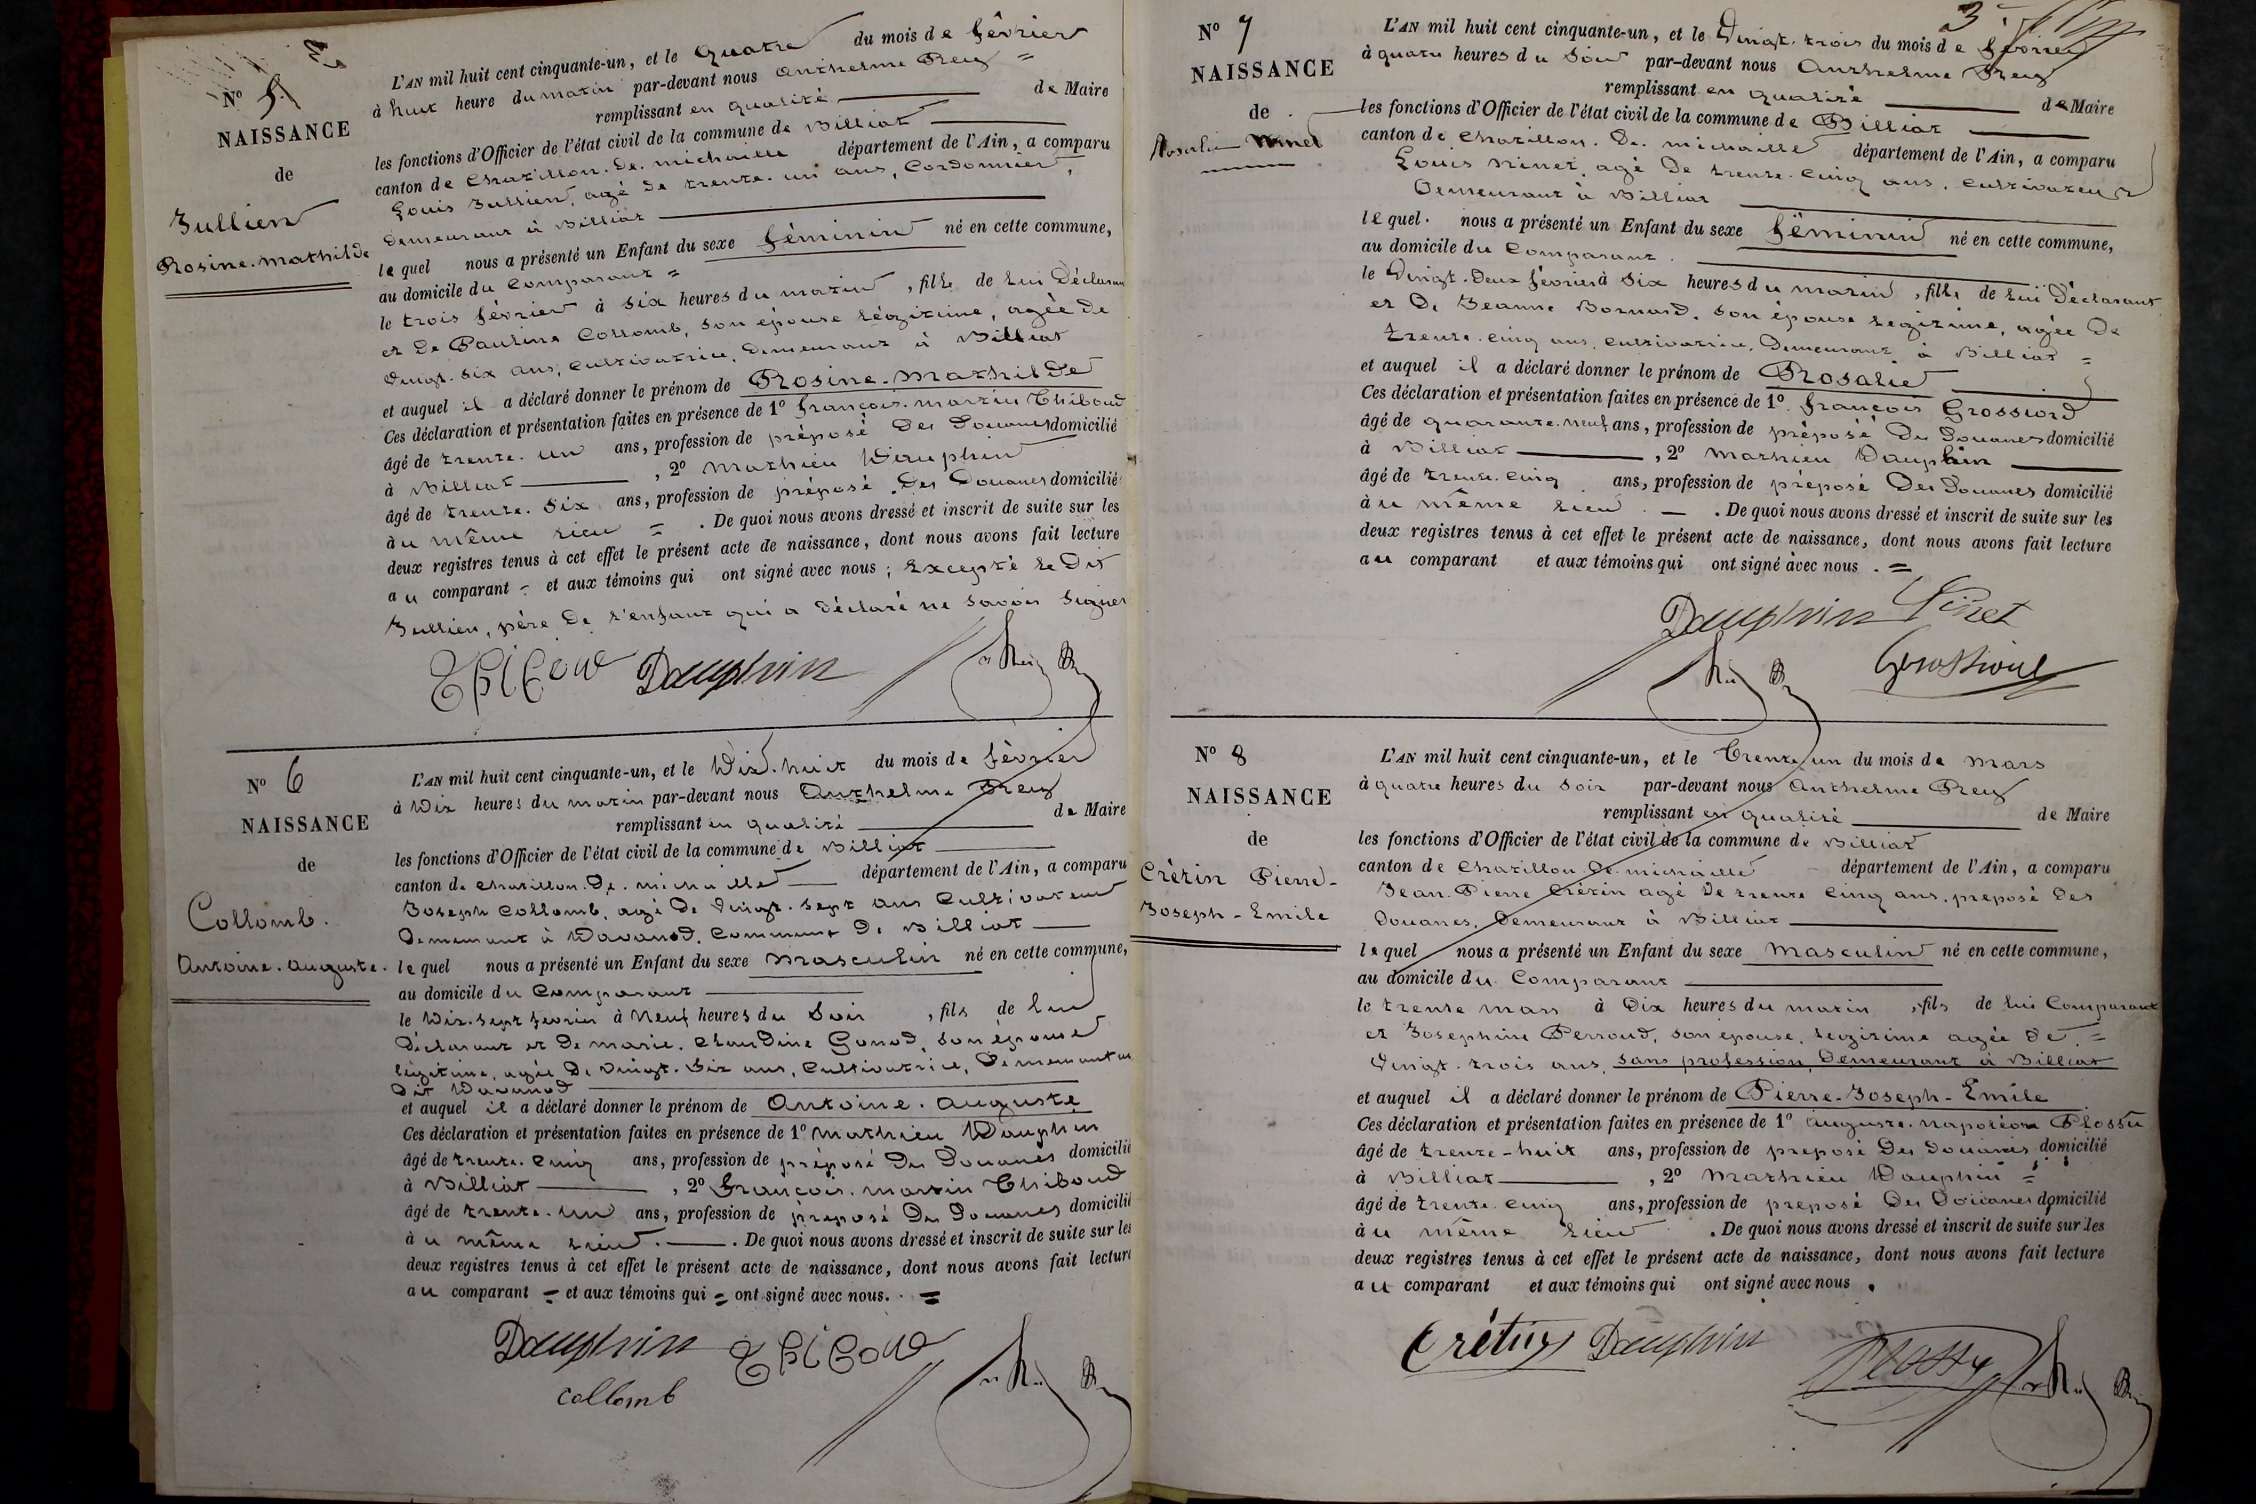 Nº 5.
NAISSANCE
de
Jullien
Rosine-Mathilde
L'AN mil huit cent cinquante-un, et le Quatre du mois de février
à huit heure du matin par-devant nous Anthelme Rey =
remplissant en qualité de Maire
les fonctions d'Officier de l'état civil de la commune de Billiat
canton de Chatillon. De. michaille département de l'Ain, a comparu
Louis Jullien, agé de trente. un ans, Cordonnier,
demeurant à Billiat
lequel nous a présenté un Enfant du sexe féminin né en cette commune,
au domicile du Comparant =
le trois février à Six heures du matin, fille de lui Déclarant
et De Pauline Collomb, son épouse légitime, agée de
vingt. six ans, cultivatrice, demeurant à Billiat
et auquel il a déclaré donner le prénom de Rosine-Mathilde
Ces déclaration et présentation faites en présence de 1º françois. martin Thiboud
âgé de trente. un ans, profession de préposé Des Douanes domicilié
à Billiat, 2º Mathieu Dauphin
âgé de trente. Six ans, profession de préposé Des Douanes domicilié
àu même lieu = . De quoi nous avons dressé et inscrit de suite sur les
deux registres tenus à cet effet le présent acte de naissance, dont nous avons fait lecture
au comparant - et aux témoins qui ont signé avec nous ; Excepté le Dit
Jullien, père De l'enfant qui a Déclaré ne savoir signer
Thiboud Dauphin Rey
Nº 6
NAISSANCE
de
Collomb.
Antoine. Auguste.
L'AN mil huit cent cinquante-un, et le Dix. huit du mois de février
à Dix heures du matin par-devant nous Anthelme Rey
remplissant en qualité de Maire
les fonctions d'Officier de l'état civil de la commune de Billiat
canton de Chatillon. De. michaille département de l'Ain, a comparu
Joseph Collomb, agé De vingt. sept ans Cultivateur
Demeurant à Davanod, Commune De Billiat
lequel nous a présenté un Enfant du sexe Masculin né en cette commune,
au domicile du Comparant
le Dix. sept fevrier à Neuf heures du Soir, fils de lui
Déclarant et De marie. Claudine Gonod, son épouse
légitime, agée De vingt. Six ans, Cultivatrice, Demeurant au
Dit Davanod
et auquel il a déclaré donner le prénom de Antoine. Auguste
Ces déclaration et présentation faites en présence de 1º Mathieu Dauphin
âgé de trente. Cinq ans, profession de préposé Des Douanes domicilié
à Billiat, 2º françois. martin Thiboud
âgé de trente. un ans, profession de preposé Des Douanes domicilié
àu même lieu. . De quoi nous avons dressé et inscrit de suite sur les
deux registres tenus à cet effet le présent acte de naissance, dont nous avons fait lecture
au comparant = et aux témoins qui = ont signé avec nous. =
Dauphin Thiboud Rey
collomb
3
Nº 7
NAISSANCE
de
Rosalie Ninet
L'AN mil huit cent cinquante-un, et le Vingt. trois du mois de février
à quatre heures du Soir par-devant nous Anthelme Rey
remplissant en qualité de Maire
les fonctions d'Officier de l'état civil de la commune de Billiat
canton de Chatillon. De. michaille département de l'Ain, a comparu
Louis Ninet, agé De trente. Cinq ans, Cultivateur
Demeurant à Billiat
lequel. nous a présenté un Enfant du sexe féminin né en cette commune,
au domicile du Comparant.
le Vingt. Deux février à Six heures du matin, fille de lui Déclarant
et De Jeanne Bornard, son épouse legitime, agée De
trente. cinq ans, cultivatrice, Demeurant à Billiat =
et auquel il a déclaré donner le prénom de Rosalie
Ces déclaration et présentation faites en présence de 1º. françois Grossiord
âgé de quarante. neuf ans, profession de préposé Des Douanes domicilié
à Billiat, 2º Mathieu Dauphin
âgé de trente. cinq ans, profession de préposé Des Douanes domicilié
àu même lieu. . De quoi nous avons dressé et inscrit de suite sur les
deux registres tenus à cet effet le présent acte de naissance, dont nous avons fait lecture
au comparant et aux témoins qui ont signé avec nous . =
Dauphin Ninet
Rey Grossiord
Nº 8
NAISSANCE
de
Crétin Pierre-
Joseph-Emile
L'AN mil huit cent cinquante-un, et le Trente un du mois de Mars
à quatre heures du Soir par-devant nous Anthelme Rey
remplissant en qualité de Maire
les fonctions d'Officier de l'état civil de la commune de Billiat
canton de Chatillon De michaille département de l'Ain, a comparu
Jean. Pierre Crétin agé De trente cinq ans, preposé Des
Douanes, Demeurant à Billiat
lequel nous a présenté un Enfant du sexe Masculin né en cette commune,
au domicile du Comparant
le trente mars à Dix heures du matin, fils de lui Comparant
et Josephine Perroud, son épouse, legitime agée De =
Vingt. trois ans, sans profession, Demeurant à Billiat
et auquel il a déclaré donner le prénom de Pierre-Joseph-Emile
Ces déclaration et présentation faites en présence de 1º Auguste. Napoléon Plossu
âgé de trente-huit ans, profession de preposé Des Douanes domicilié
à Billiat, 2º Mathieu Dauphin =
âgé de trente cinq ans, profession de preposé Des Douanes domicilié
àu même lieu . De quoi nous avons dressé et inscrit de suite sur les
deux registres tenus à cet effet le présent acte de naissance, dont nous avons fait lecture
au comparant et aux témoins qui ont signé avec nous .
Crétin Dauphin Plossu Rey